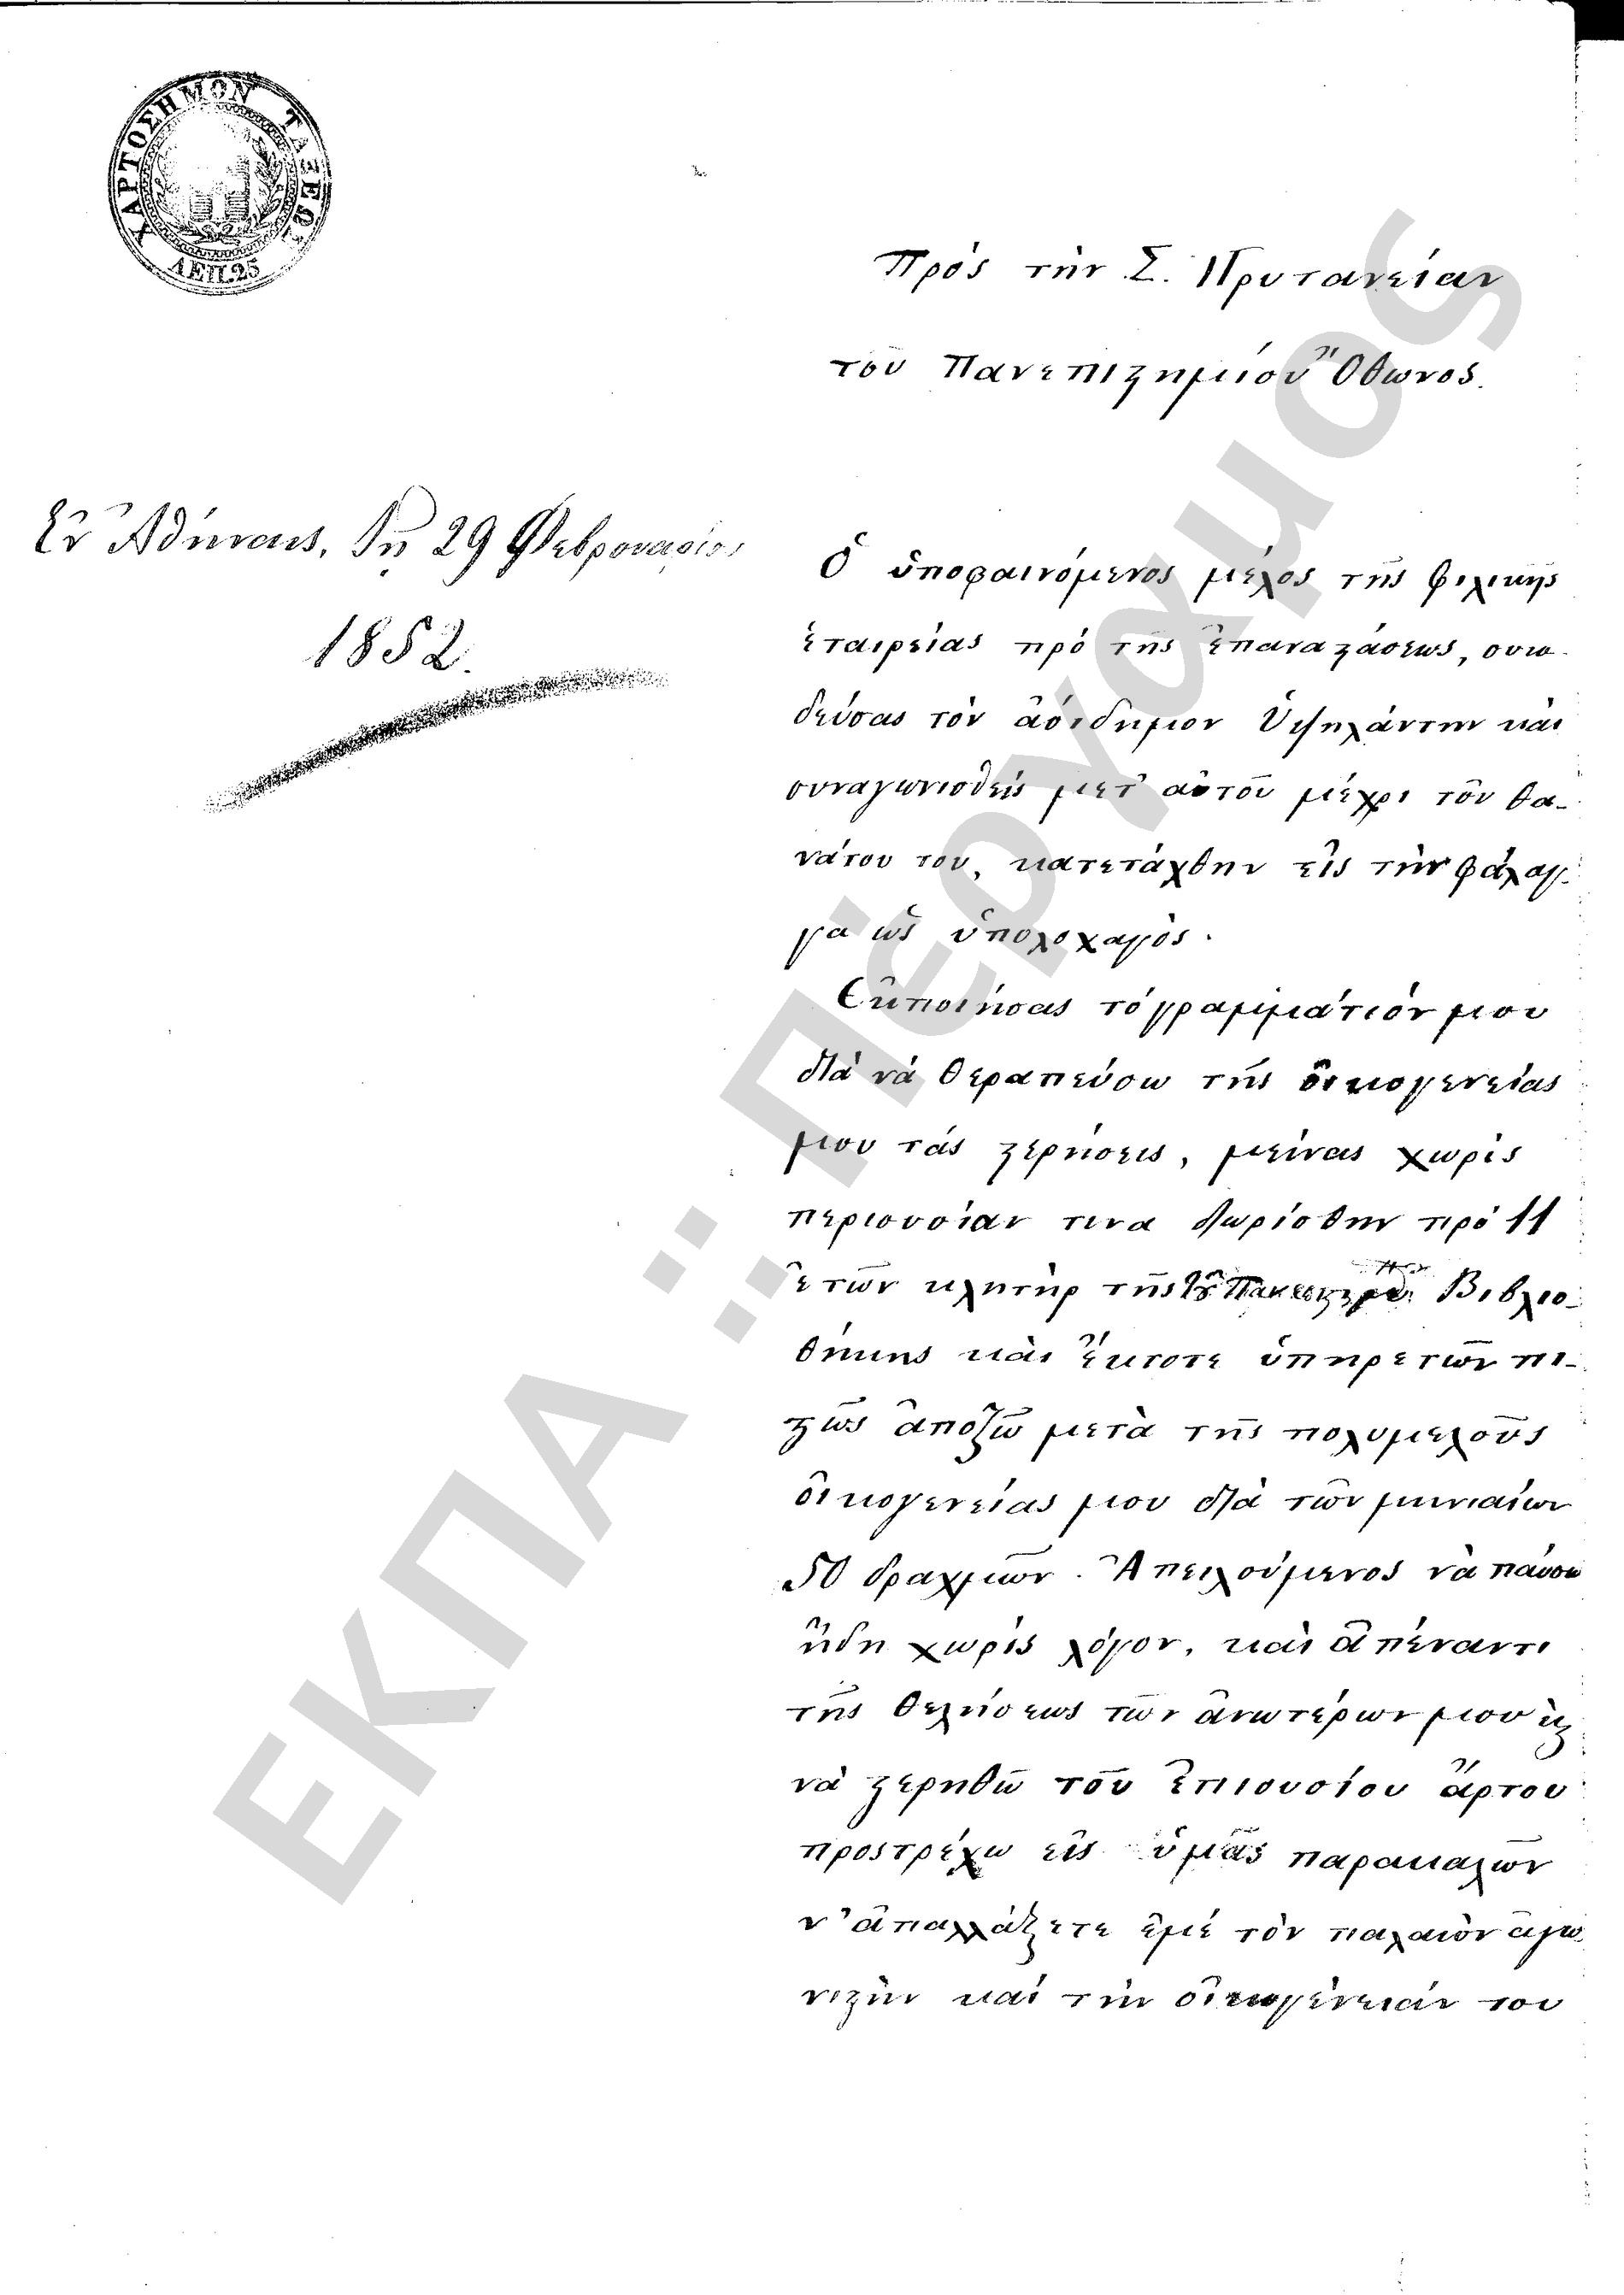 ΧΑΡΤΟΣΗΜΟΝ ΤΑΞΕΩΣ
ΛΕΠ.25
Πρὸς τὴν Σ. Πρυτανείαν
τοῦ Πανεπιϛημίου Ὄθωνος.
Ἐν Ἀθήναις, τῇ 29 Φεβρουαρίου
1852.
Ὁ ὑποφαινόμενος μέλος τῆς φιλικῆς
ἑταιρείας πρὸ τῆς ἐπαναϛάσεως, συνο-
δεύσας τὸν ἀοίδημον Ὑψηλάντην καὶ
συναγωνισθεὶς μετ' αὐτοῦ μέχρι τοῦ θα-
νάτου του, κατετάχθην εἰς τὴν φάλαγ-
γα ὡς ὑπολοχαγὸς.
Ἐκποιήσας τὸ γραμμάτιόν μου
διὰ νὰ θεραπεύσω τῆς οἰκογενείας
μου τὰς ϛερήσεις, μείνας χωρὶς
περιουσίαν τινα διωρίσθην πρὸ 11
ἐτῶν κλητὴρ τῆς Βιβλιο-
θήκης καὶ ἔκτοτε ὑπηρετῶν πι-
ϛῶς ἀποζῶ μετὰ τῆς πολυμελοῦς
οἰκογενείας μου διὰ τῶν μηνιαίων
50 δραχμῶν. Ἀπειλούμενος νὰ παύσω
ἤδη χωρὶς λόγον, καὶ ἀπέναντι
τῆς θελήσεως τῶν ἀνωτέρων μου ϗ
νὰ ϛερηθῶ τοῦ ἐπιουσίου ἄρτου
προστρέχω εἰς ὑμᾶς παρακαλῶν
ν' ἀπαλλάξετε ἐμὲ τὸν παλαιὸν ἀγω-
νιϛὴν καὶ τὴν οἰκογένειάν του
ΕΚΠΑ : Πέργαμος